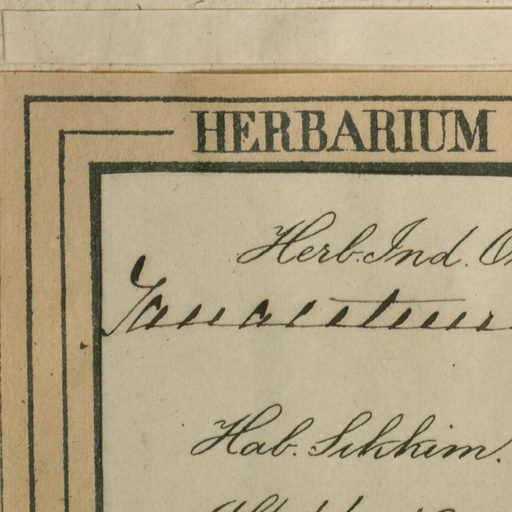 HERBARIUM
Herb. Ind. O
Tanacetum
Hab. Sikkim.